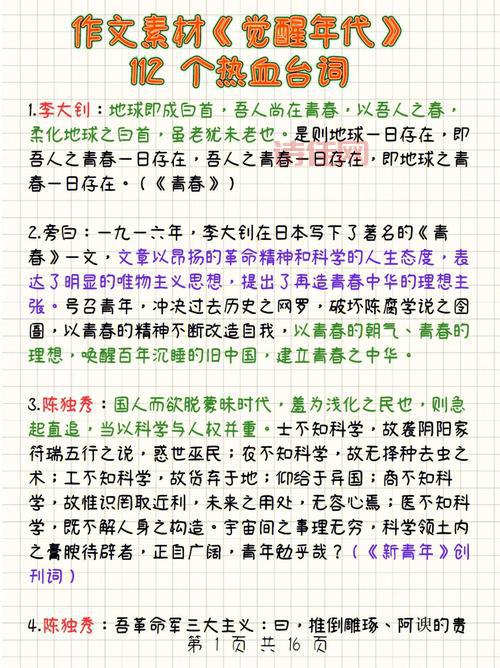 作文素材《觉醒年代》
112 个热血台词
1.李大钊：地球即成白首，吾人尚在青春，以吾人之春，
柔化地球之白首，虽老犹未老也。是则地球一日存在，即
吾人之青春一日存在，吾人之青春一日存在，即地球之青
春一日存在。（《青春》）
2.旁白：一九一六年，李大钊在日本写下了著名的《青
春》一文，文章以昂扬的革命精神和科学的人生态度，表
达了明显的唯物主义思想，提出了再造青春中华的理想主
张。号召青年，冲决过去历史之网罗，破坏陈腐学说之囹
圄，以青春的精神不断改造自我，以青春的朝气、青春的
理想，唤醒百年沉睡的旧中国，建立青春之中华。
3.陈独秀：国人而欲脱蒙昧时代，羞为浅化之民也，则急
起直追，当以科学与人权并重。士不知科学，故袭阴阳家
符瑞五行之说，惑世巫民；农不知科学，故无择种去虫之
术；工不知科学，故货弃于地；仰给于异国；商不知科
学，故惟识罔取近利，未来之用处，无容心焉；医不知科
学，既不解人身之构造。宇宙间之事理无穷，科学领土内
之膏腴待辟者，正自广阔，青年勉乎哉？（《新青年》创
刊词）
4.陈独秀：吾革命军三大主义：曰，推倒雕琢、阿谀的贵
第 1 页 共 16 页